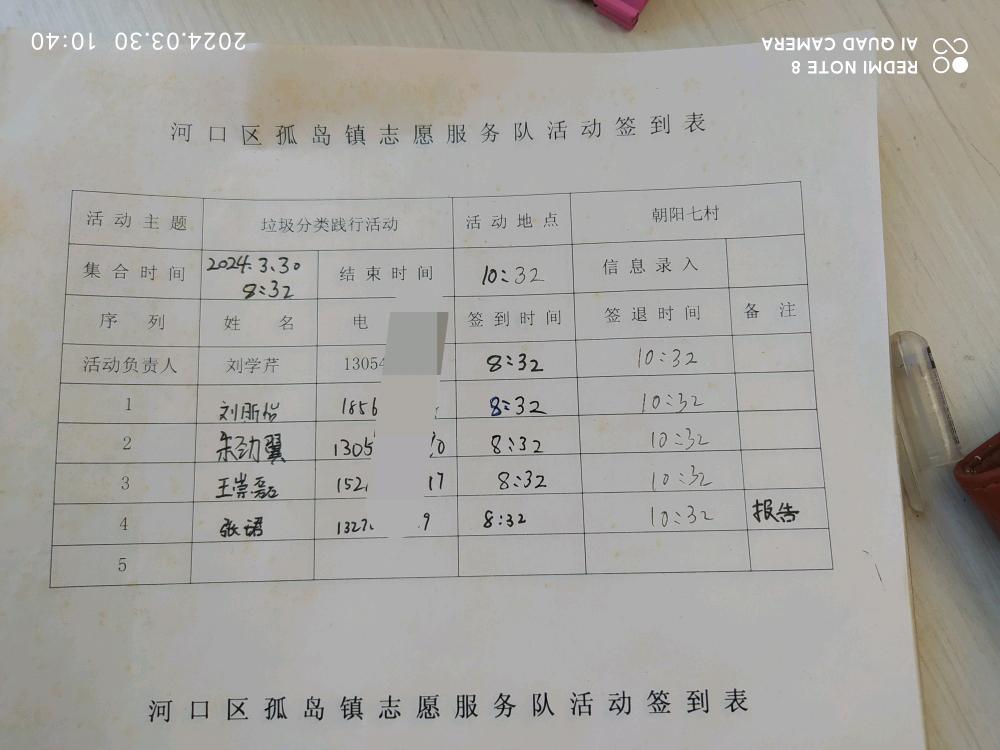 2024.03.30 10:40
REDMI NOTE 8
AI QUAD CAMERA
河口区孤岛镇志愿服务队活动签到表
活动主题 垃圾分类践行活动 活动地点 朝阳七村
集合时间 2024.3.30 8:32 结束时间 10:32 信息录入
序列 姓名 电 签到时间 签退时间 备注
活动负责人 刘学芹 13054 8:32 10:32
1 刘昕怡 1856 8:32 10:32
2 朱劲翼 1305 0 8:32 10:32
3 王崇磊 152 17 8:32 10:32
4 张珺 1327 9 8:32 10:32 报告
5
河口区孤岛镇志愿服务队活动签到表